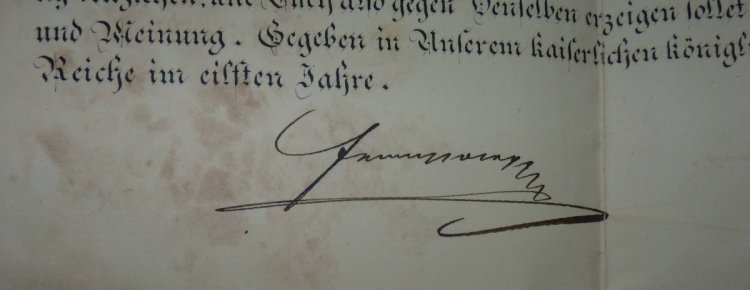 und Euch also gegen Denselben erzeigen sollet
und Meinung. Gegeben in Unserem kaiserlichen königl
Reiche im eilften Jahre.